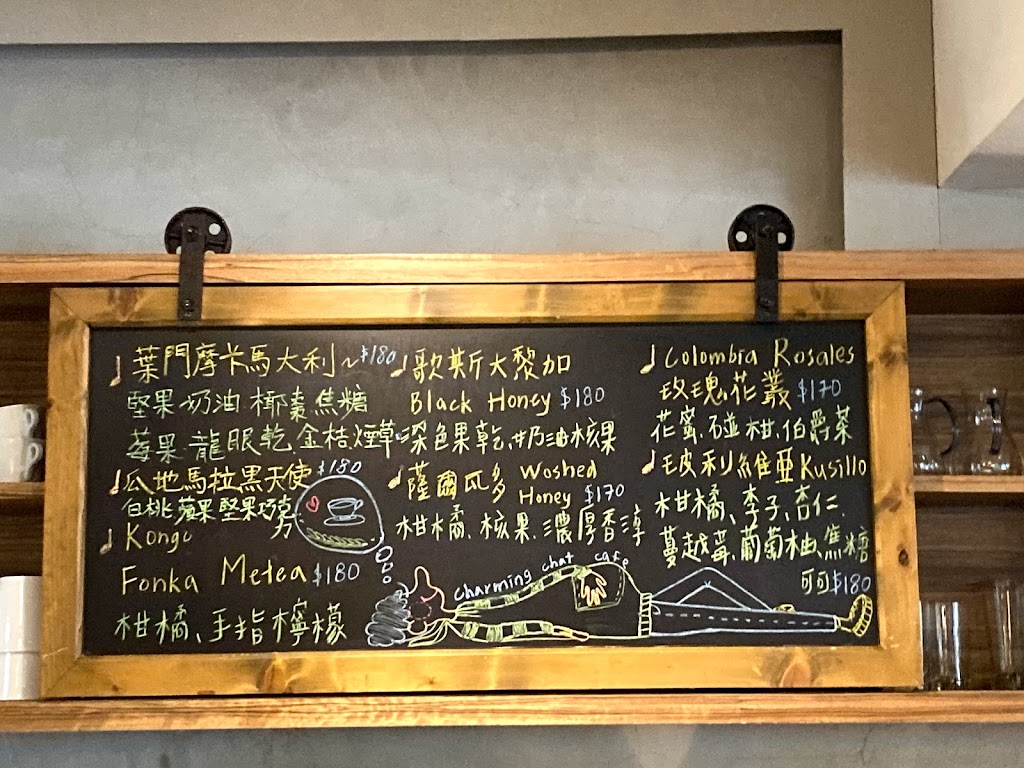 葉門摩卡馬大利~$180
堅果.奶油.椰棗.焦糖
莓果.龍眼乾.金桔.煙草
瓜地馬拉黑天使$180
白桃.蘋果.堅果.巧克力
Kongo
Fonka Metea $180
柑橘、手指檸檬
歌斯大黎加
Black Honey $180
深色果乾.奶油.核果
薩爾瓦多 Woshed
Honey $170
柑橘.核果.濃厚香淳
charming chat caf.
Colombia Rosales
玫瑰花叢 $170
花蜜.碰柑.伯爵茶
玻利維亞Kusillo
柑橘、李子、杏仁、
蔓越莓.葡萄柚.焦糖
可可$180